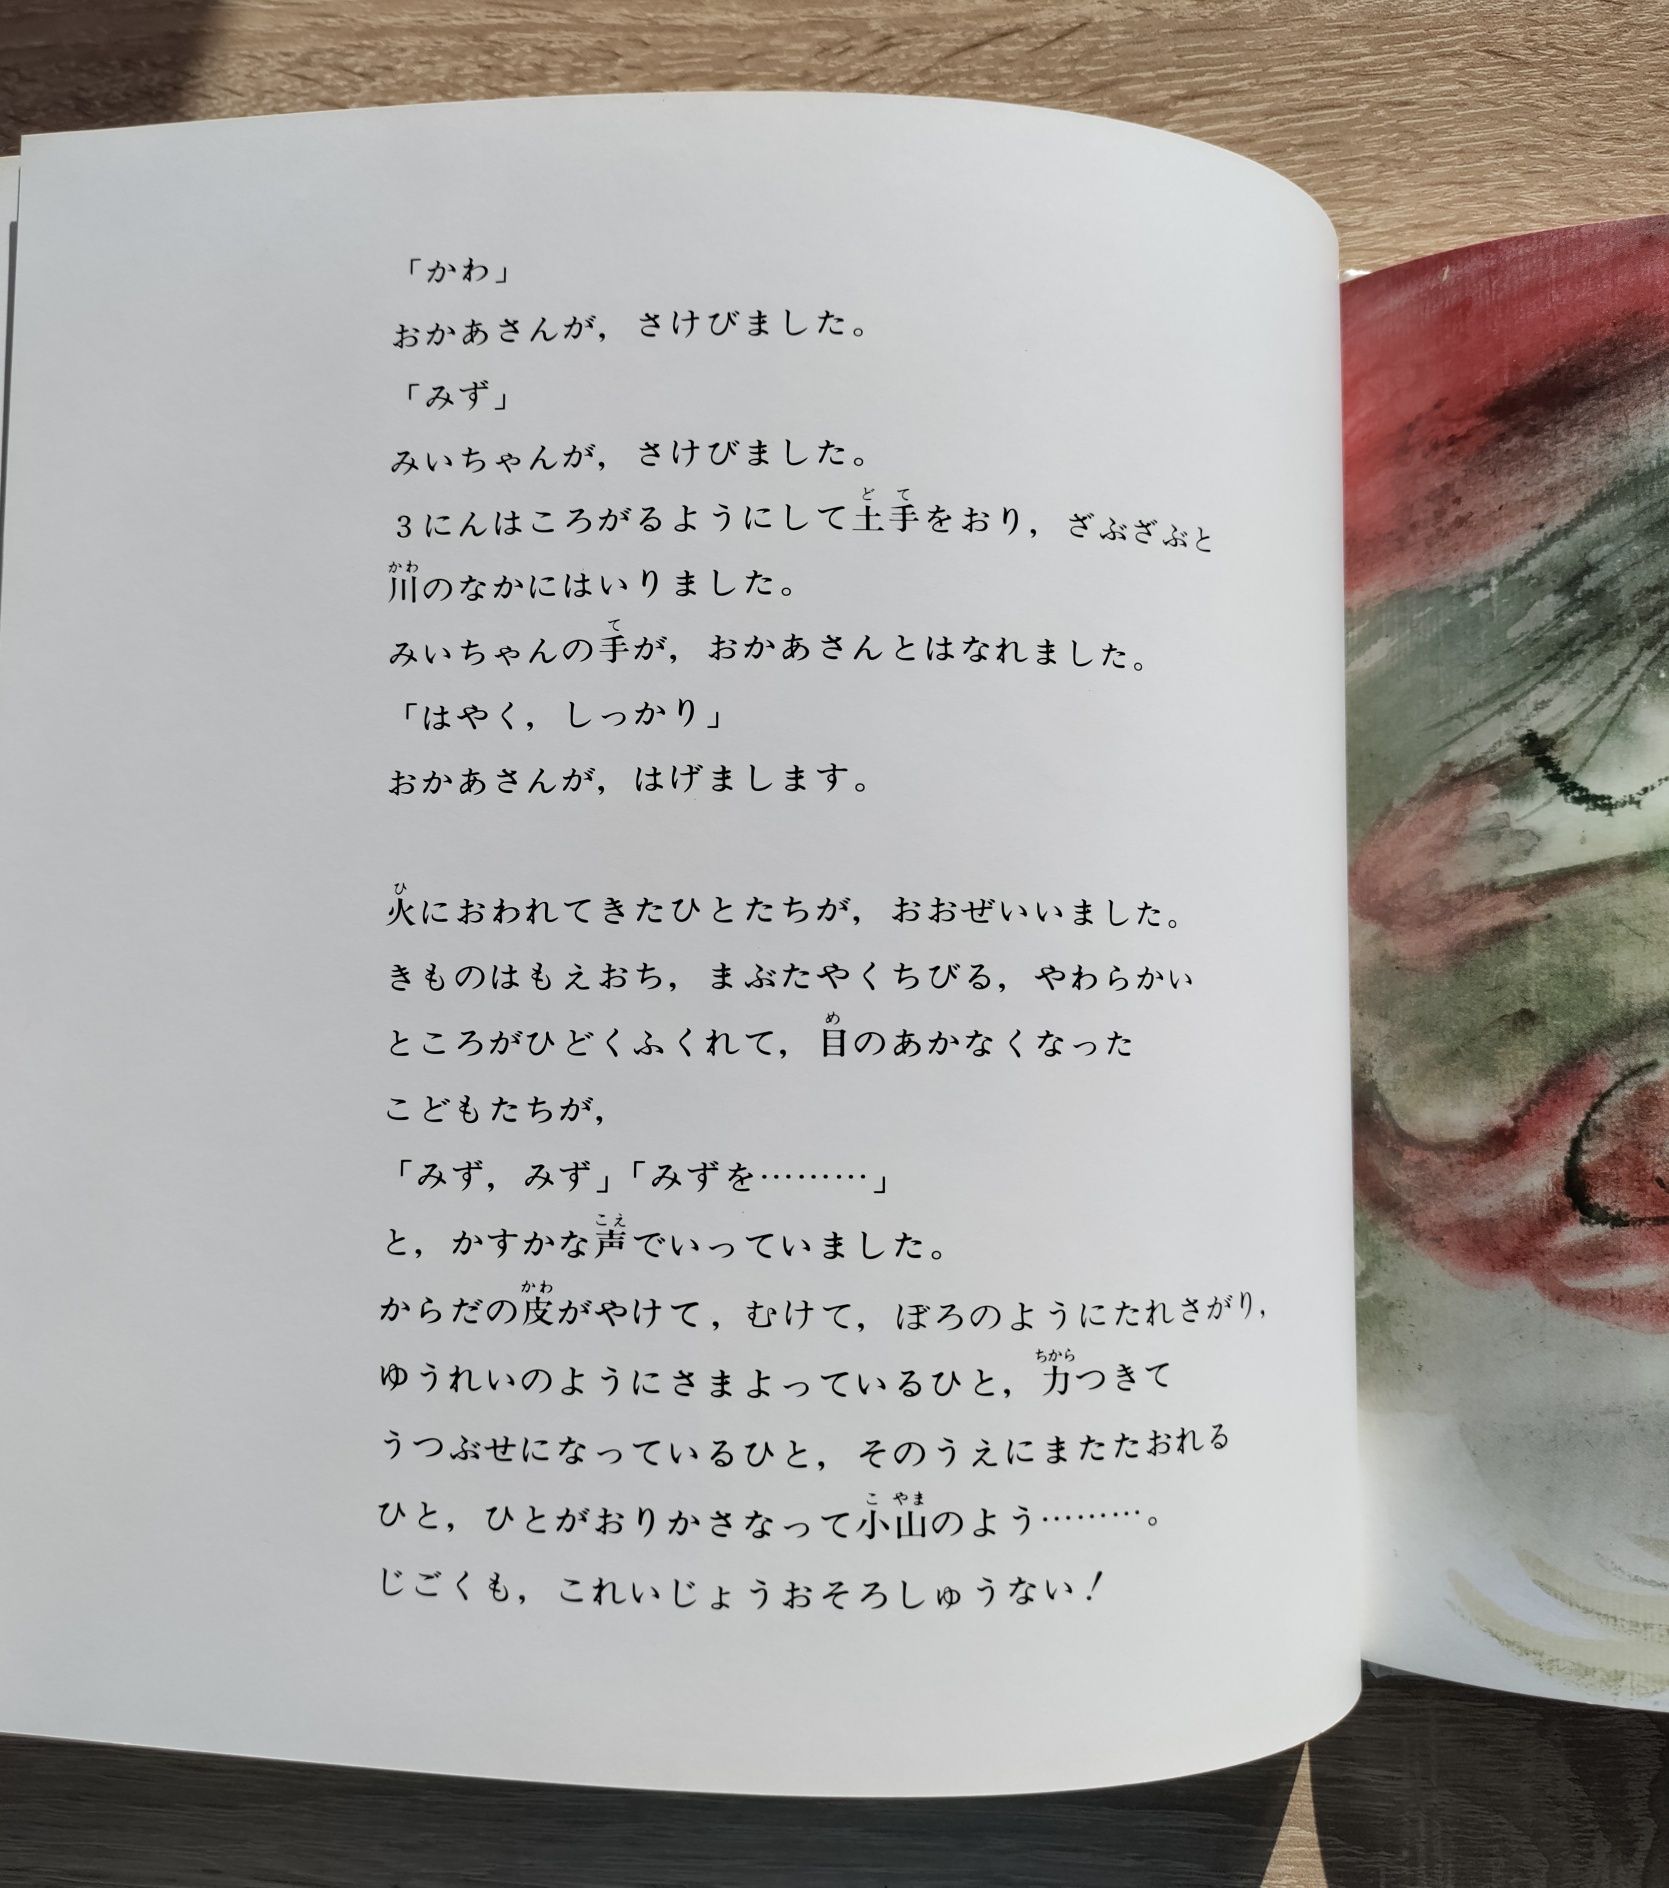 「かわ」
おかあさんが，さけびました。
「みず」
みいちゃんが，さけびました。
3にんはころがるようにして土手をおり，ざぶざぶと
川のなかにはいりました。
みいちゃんの手が，おかあさんとはなれました。
「はやく，しっかり」
おかあさんが，はげまします。
火におわれてきたひとたちが，おおぜいいました。
きものはもえおち，まぶたやくちびる，やわらかい
ところがひどくふくれて，目のあかなくなった
こどもたちが，
「みず，みず」「みずを………」
と，かすかな声でいっていました。
からだの皮がやけて，むけて，ぼろのようにたれさがり，
ゆうれいのようにさまよっているひと，力つきて
うつぶせになっているひと，そのうえにまたたおれる
ひと，ひとがおりかさなって小山のよう………。
じごくも，これいじょうおそろしゅうない！